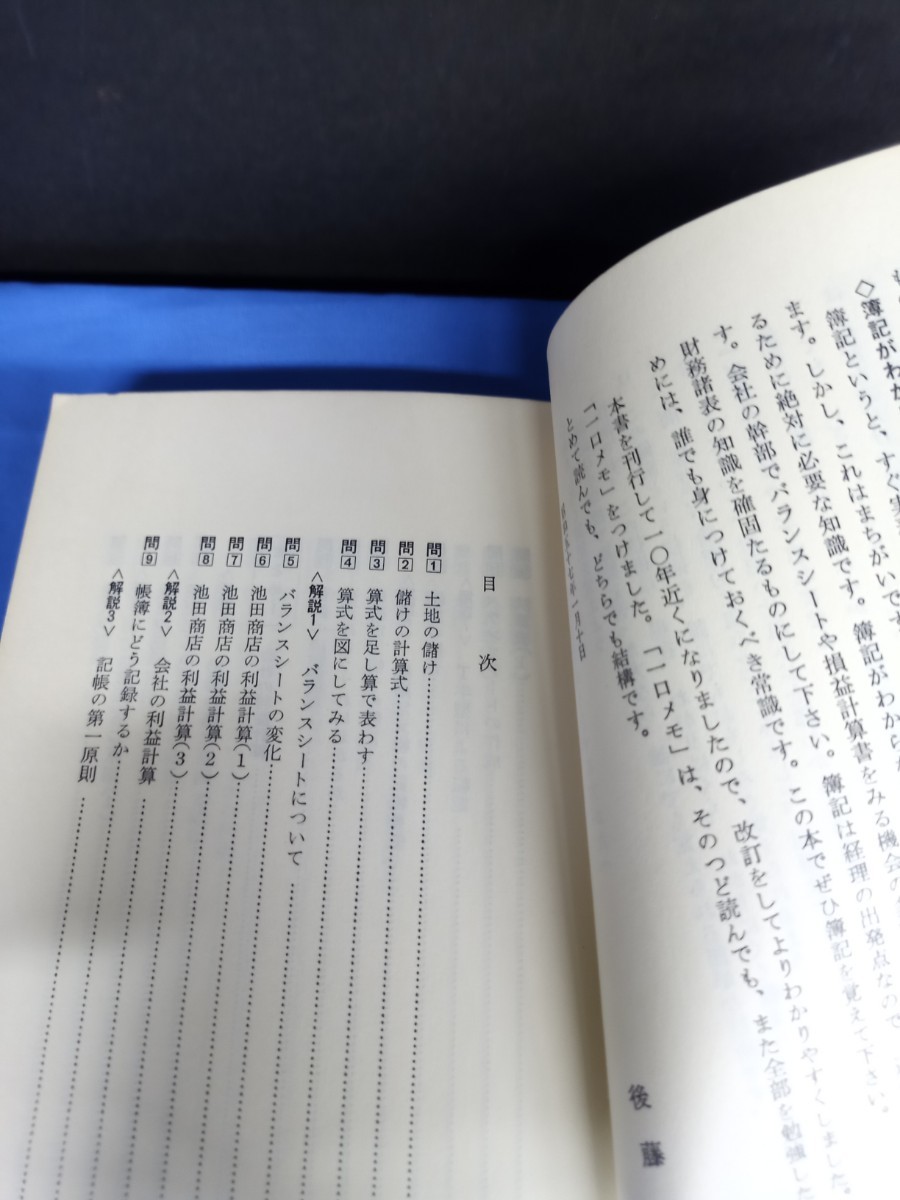 ◇簿記がわか
簿記というと、すぐ実
ます。しかし、これはまちがいです。簿記がわから
るために絶対に必要な知識です。バランスシートや損益計算書をみる機会の
す。会社の幹部でバランスシートや
財務諸表の知識を確固たるものにして下さい。簿記は経理の出発点なので
めには、誰でも身につけておくべき常識です。この本でぜひ簿記を覚えて下さい。
本書を刊行して一〇年近くになりましたので、改訂をしてよりわかりやすくしました。
「一口メモ」をつけました。「一口メモ」は、そのつど読んでも、また全部を勉強し
とめて読んでも、どちらでも結構です。
月十日
後藤
目次
問1 土地の儲け
問2 儲けの計算式
問3 算式を足し算で表わす
問4 算式を図にしてみる
<解説1> バランスシートについて
問5 バランスシートの変化
問6 池田商店の利益計算(1)
問7 池田商店の利益計算(2)
問8 池田商店の利益計算(3)
<解説2> 会社の利益計算
問9 帳簿にどう記録するか
<解説3> 記帳の第一原則